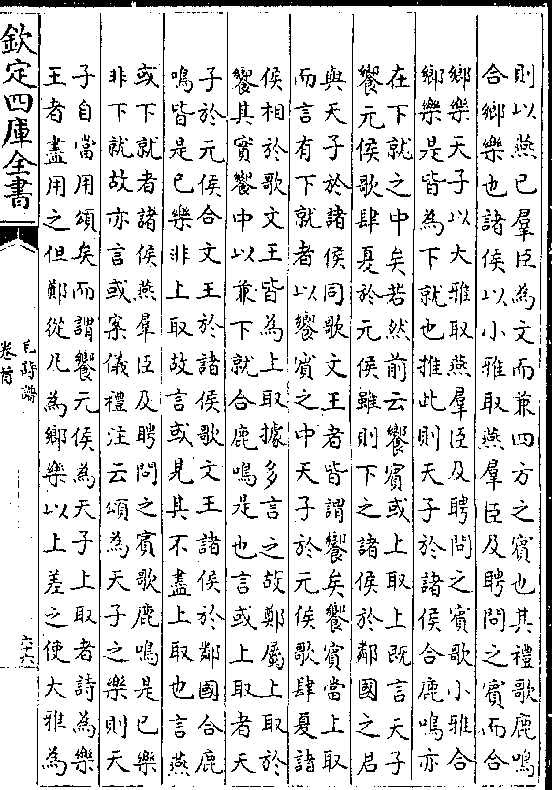 則以燕已羣臣為文而兼四方之賓也其禮歌鹿鳴
合鄉樂也諸侯以小雅取燕羣臣及聘問之賓而合
鄉樂天子以大雅取燕羣臣及聘問之賓歌小雅合
鄉樂是皆為下就也推此則天子於諸侯合鹿鳴亦
在下就之中矣若然前云饗賓或上取上既言天子
饗元侯歌肆夏於元侯雖則下之諸侯於鄰國之君
與天子於諸侯同歌文王者皆謂饗矣饗賓當上取
而言有下就者以饗賓之中天子於元侯歌肆夏諸
侯相於歌文王皆為上取據多言之故鄭屬上取於
饗其賓饗中以兼下就合鹿鳴是也言或上取者天
子於元侯合文王於諸侯歌文王諸侯於鄰國合鹿
鳴皆是已樂非上取故言或見其不盡上取也言燕
或下就者諸侯燕羣臣及聘問之賓歌鹿鳴是已樂
非下就故亦言或案儀禮注云頌為天子之樂則天
子自當用頌矣而謂饗元侯為天子上取者詩為樂
王者盡用之但鄭從凡為鄉樂以上差之使大雅為
欽定四庫全書
毛詩譜
卷首
六十六